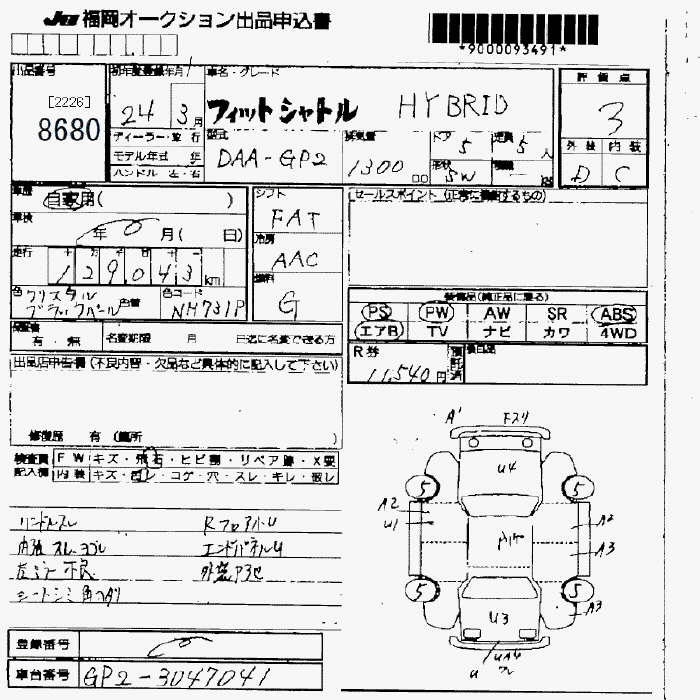 JU 福岡オークション出品申込書
*9000093491*
出品番号
[2226]
8680
初年度登録年月
24 3月
ディーラー・並 行
モデル年式 年
ハンドル 左・右
車名・グレード
フィットシャトル HYBRID
型式
DAA-GP2
排気量
1300 cc
ドア
5
定員
5 人
形状
SW
積載
kg
評価点
3
外装 内装
D C
車歴
自家用( )
車検
年 月( 日)
走行 十 万 千 百 十 一
129043 km
色 クリスタルブラックパール 色替
色コード
NH731P
シフト
FAT
冷房
AAC
燃料
G
セールスポイント (正常に機能するもの)
装備品(純正品に限る)
PS PW AW SR ABS
エアB TV ナビ カワ 4WD
保証書
有・無
名変期限 月 日迄に名変できる方
R券
11,540円
預託済
後日品
出品店申告欄 (不良内容・欠品など具体的に記入して下さい)
修復歴 有 (箇所 )
検査員記入欄
FW キズ・飛石・ヒビ割・リペア跡・X要
内装 キズ・色レ・コゲ・穴・スレ・キレ・破レ
ハンドルスレ
内張スレ・ヨゴレ
左ミラー不良
RフロアハーU
エンドパネルU
A1
U4
5
5
A2
U1
A2
A3
5
5
A3
U3
登録番号
車台番号
GP2-3047041